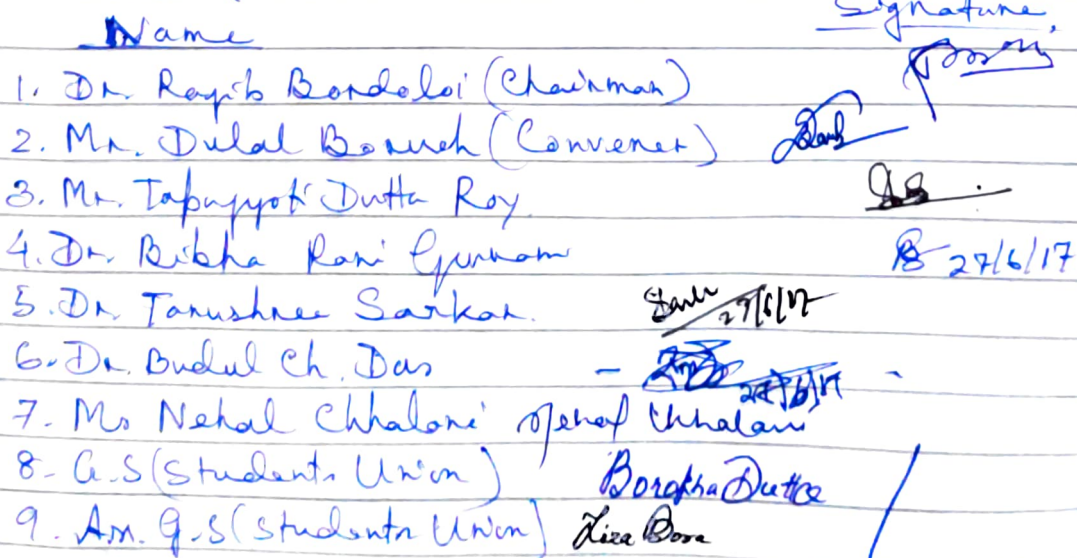 Name Signature
1. Dr. Ragib Bordoloi (Chairman)
2. Mr. Dulal Boruah (Convener)
3. Mr. Tapujyoti Dutta Roy
4. Dr. Bibha Rani 27/6/17
5. Dr. Tanushree Sarkar. 27/6/17
6. Dr. Budul Ch. Das - 27/6/17
7. Ms Nehal Chhalani Nehal Chhalani
8. G.S (Students Union) Borakha Dutta
9. Asn. G.S (Students Union) Liza Bora